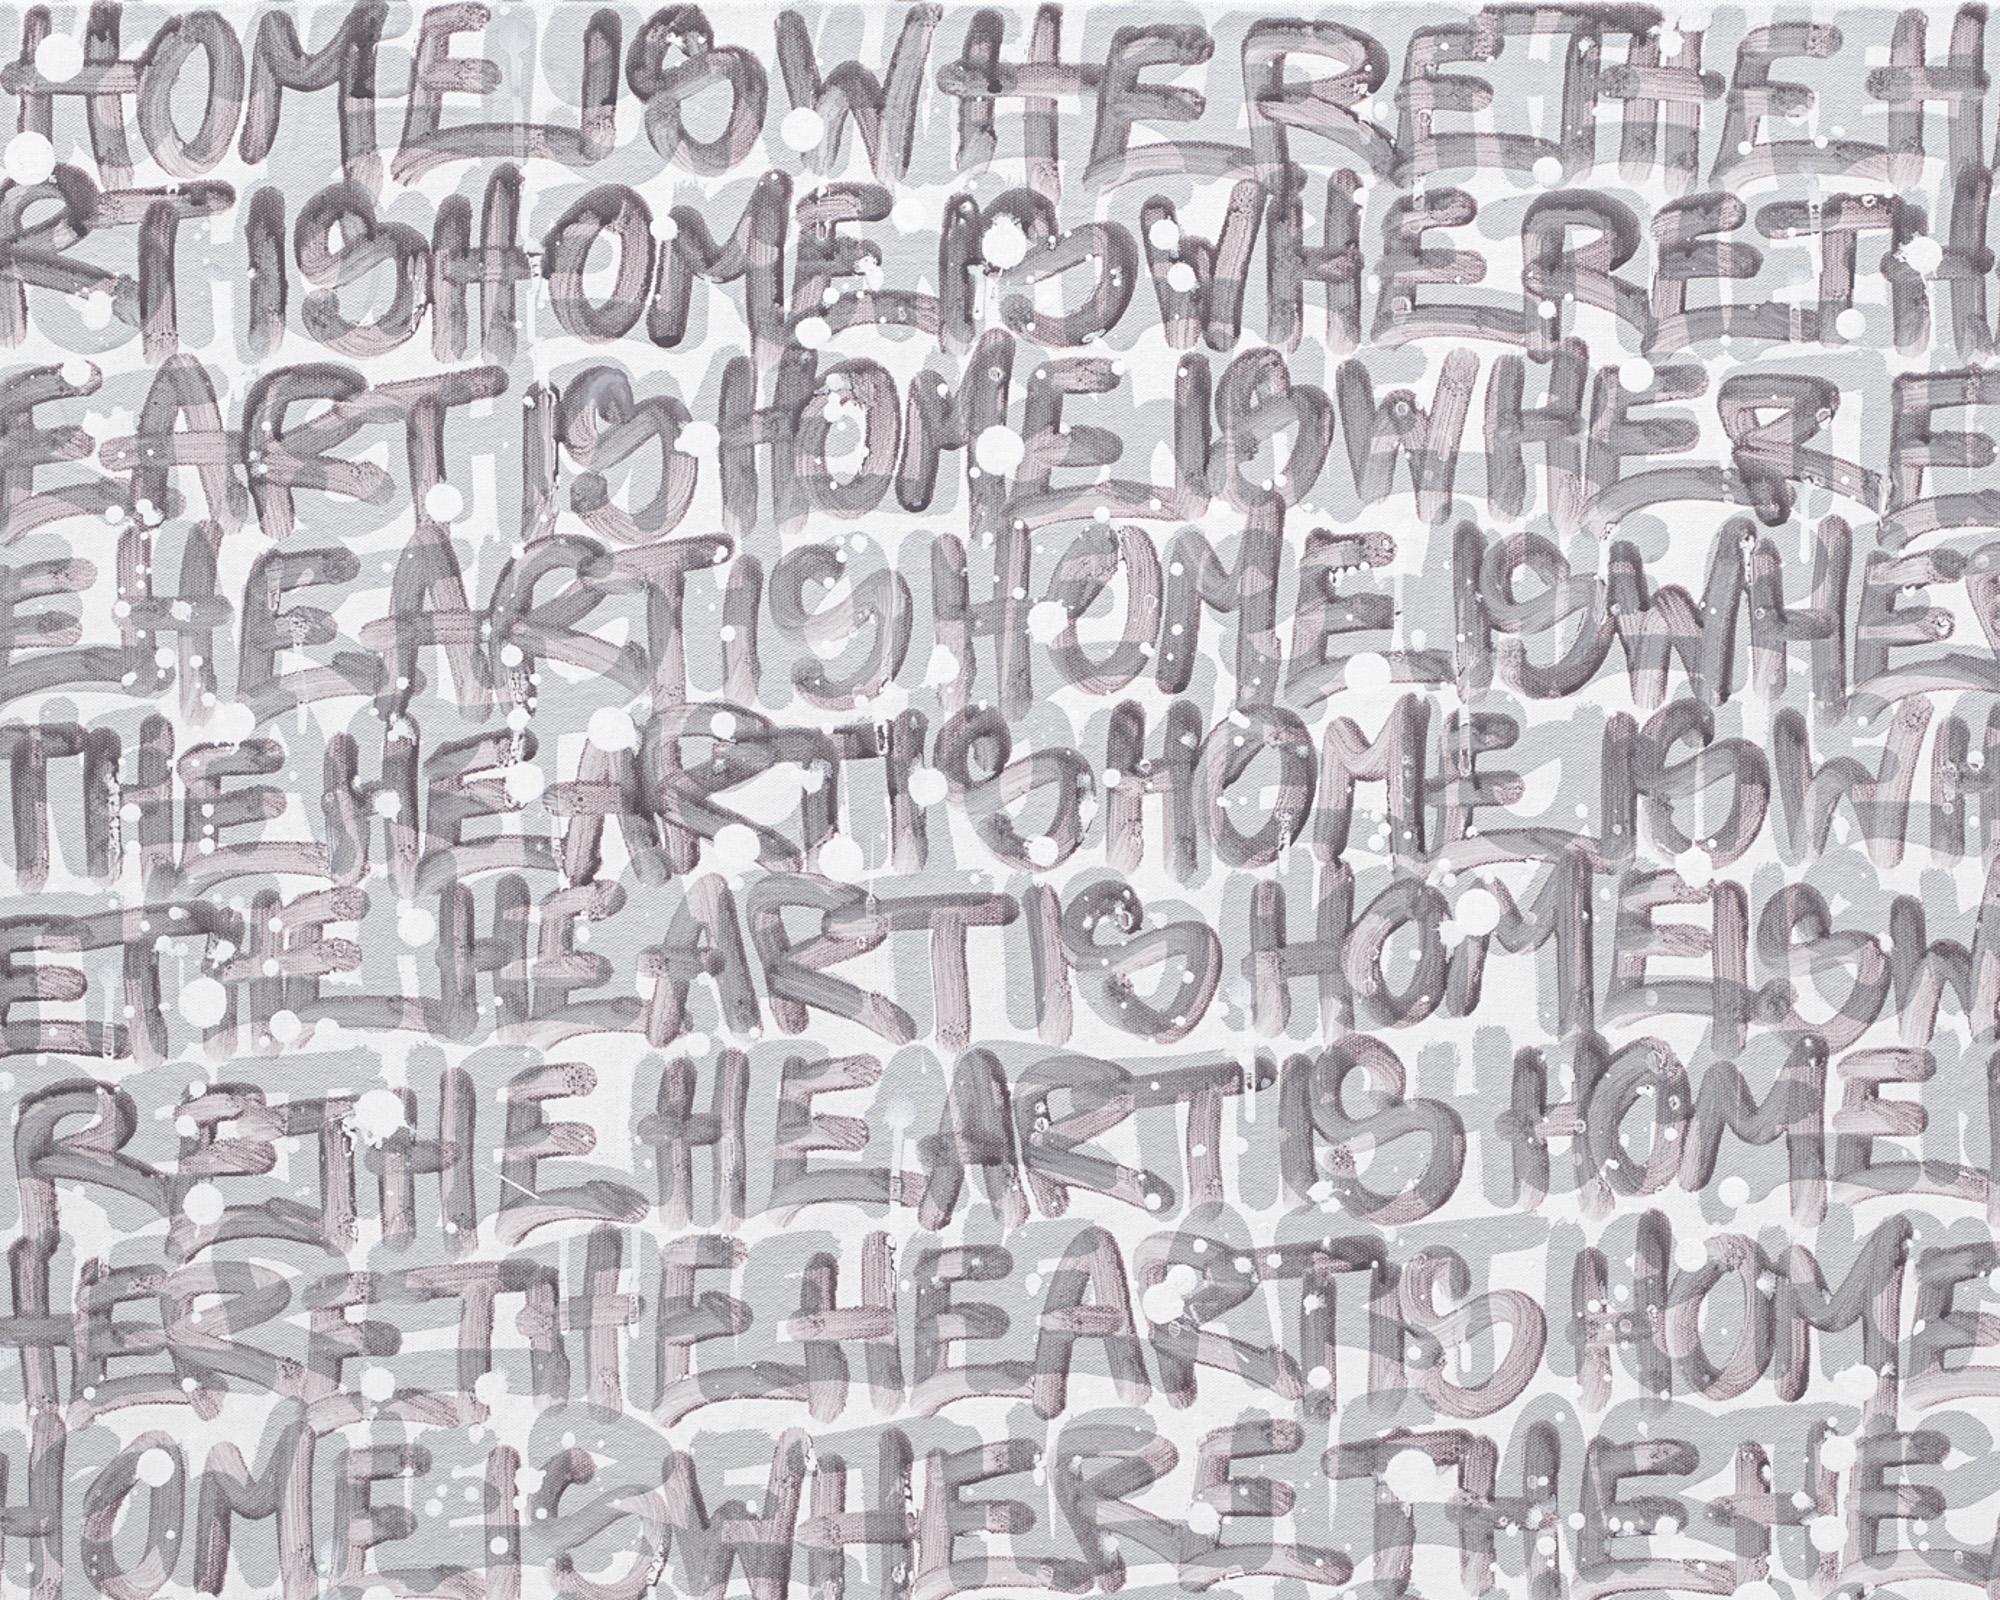 HOME IS WHERE THE H
RT IS HOME IS WHERE TH
EART IS HOME IS WHERE
E HEART IS HOME IS WHE
THE HEART IS HOME IS WH
E THE HEART IS HOME IS W
RE THE HEART IS HOME
HERE THE HEART IS HOME
HOME IS WHERE THE HE